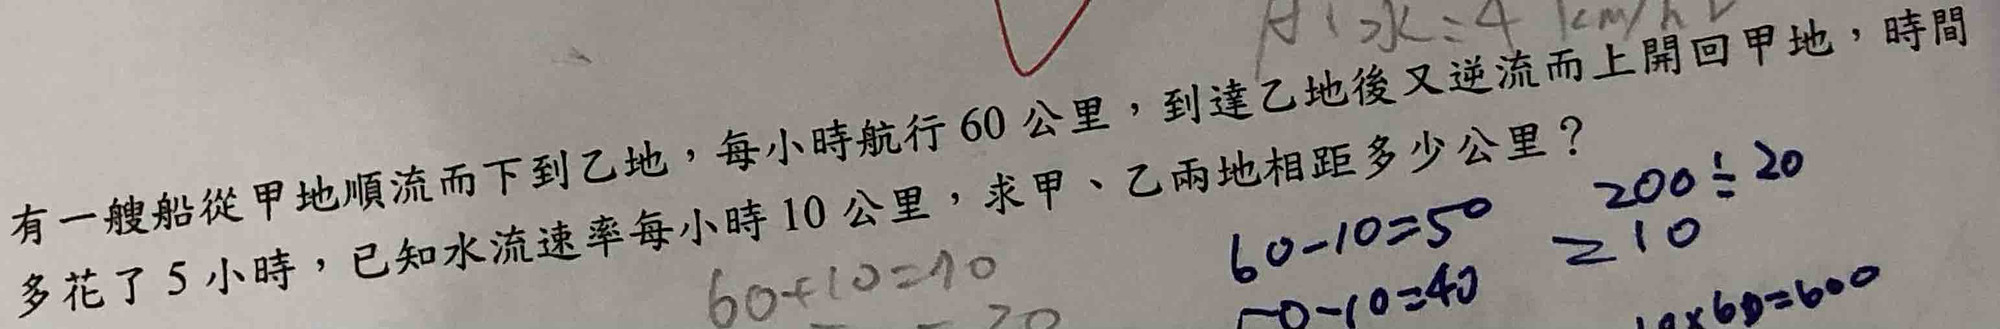 水=4 km/h
有一艘船從甲地順流而下到乙地，每小時航行 60 公里，到達乙地後又逆流而上開回甲地，時間
多花了 5 小時，已知水流速率每小時 10 公里，求甲、乙兩地相距多少公里？
60+10=70
60-10=50
50-10=40
200÷20
=10
10x60=600